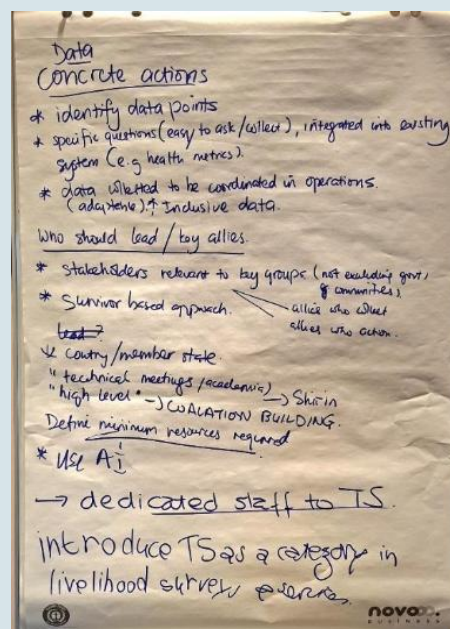 Data
Concrete actions
* identify data points
* specific questions (easy to ask/collect), integrated into existing
system (e.g health metrics).
* data collected to be coordinated in operations.
Inclusive data.
Who should lead / key allies.
* Stakeholders relevant to key groups (not excluding govt,
& communities).
* Survivor based approach.
allies who collect
allies who action.
Lead?
country/member state.
" technical meetings /academia)
"high level" → COALATION BUILDING. → Shirin
Define minimum resources required
* Use AI
→ dedicated staff to TS.
introduce TS as a category in
livelihood survey
novo
BUSINESS